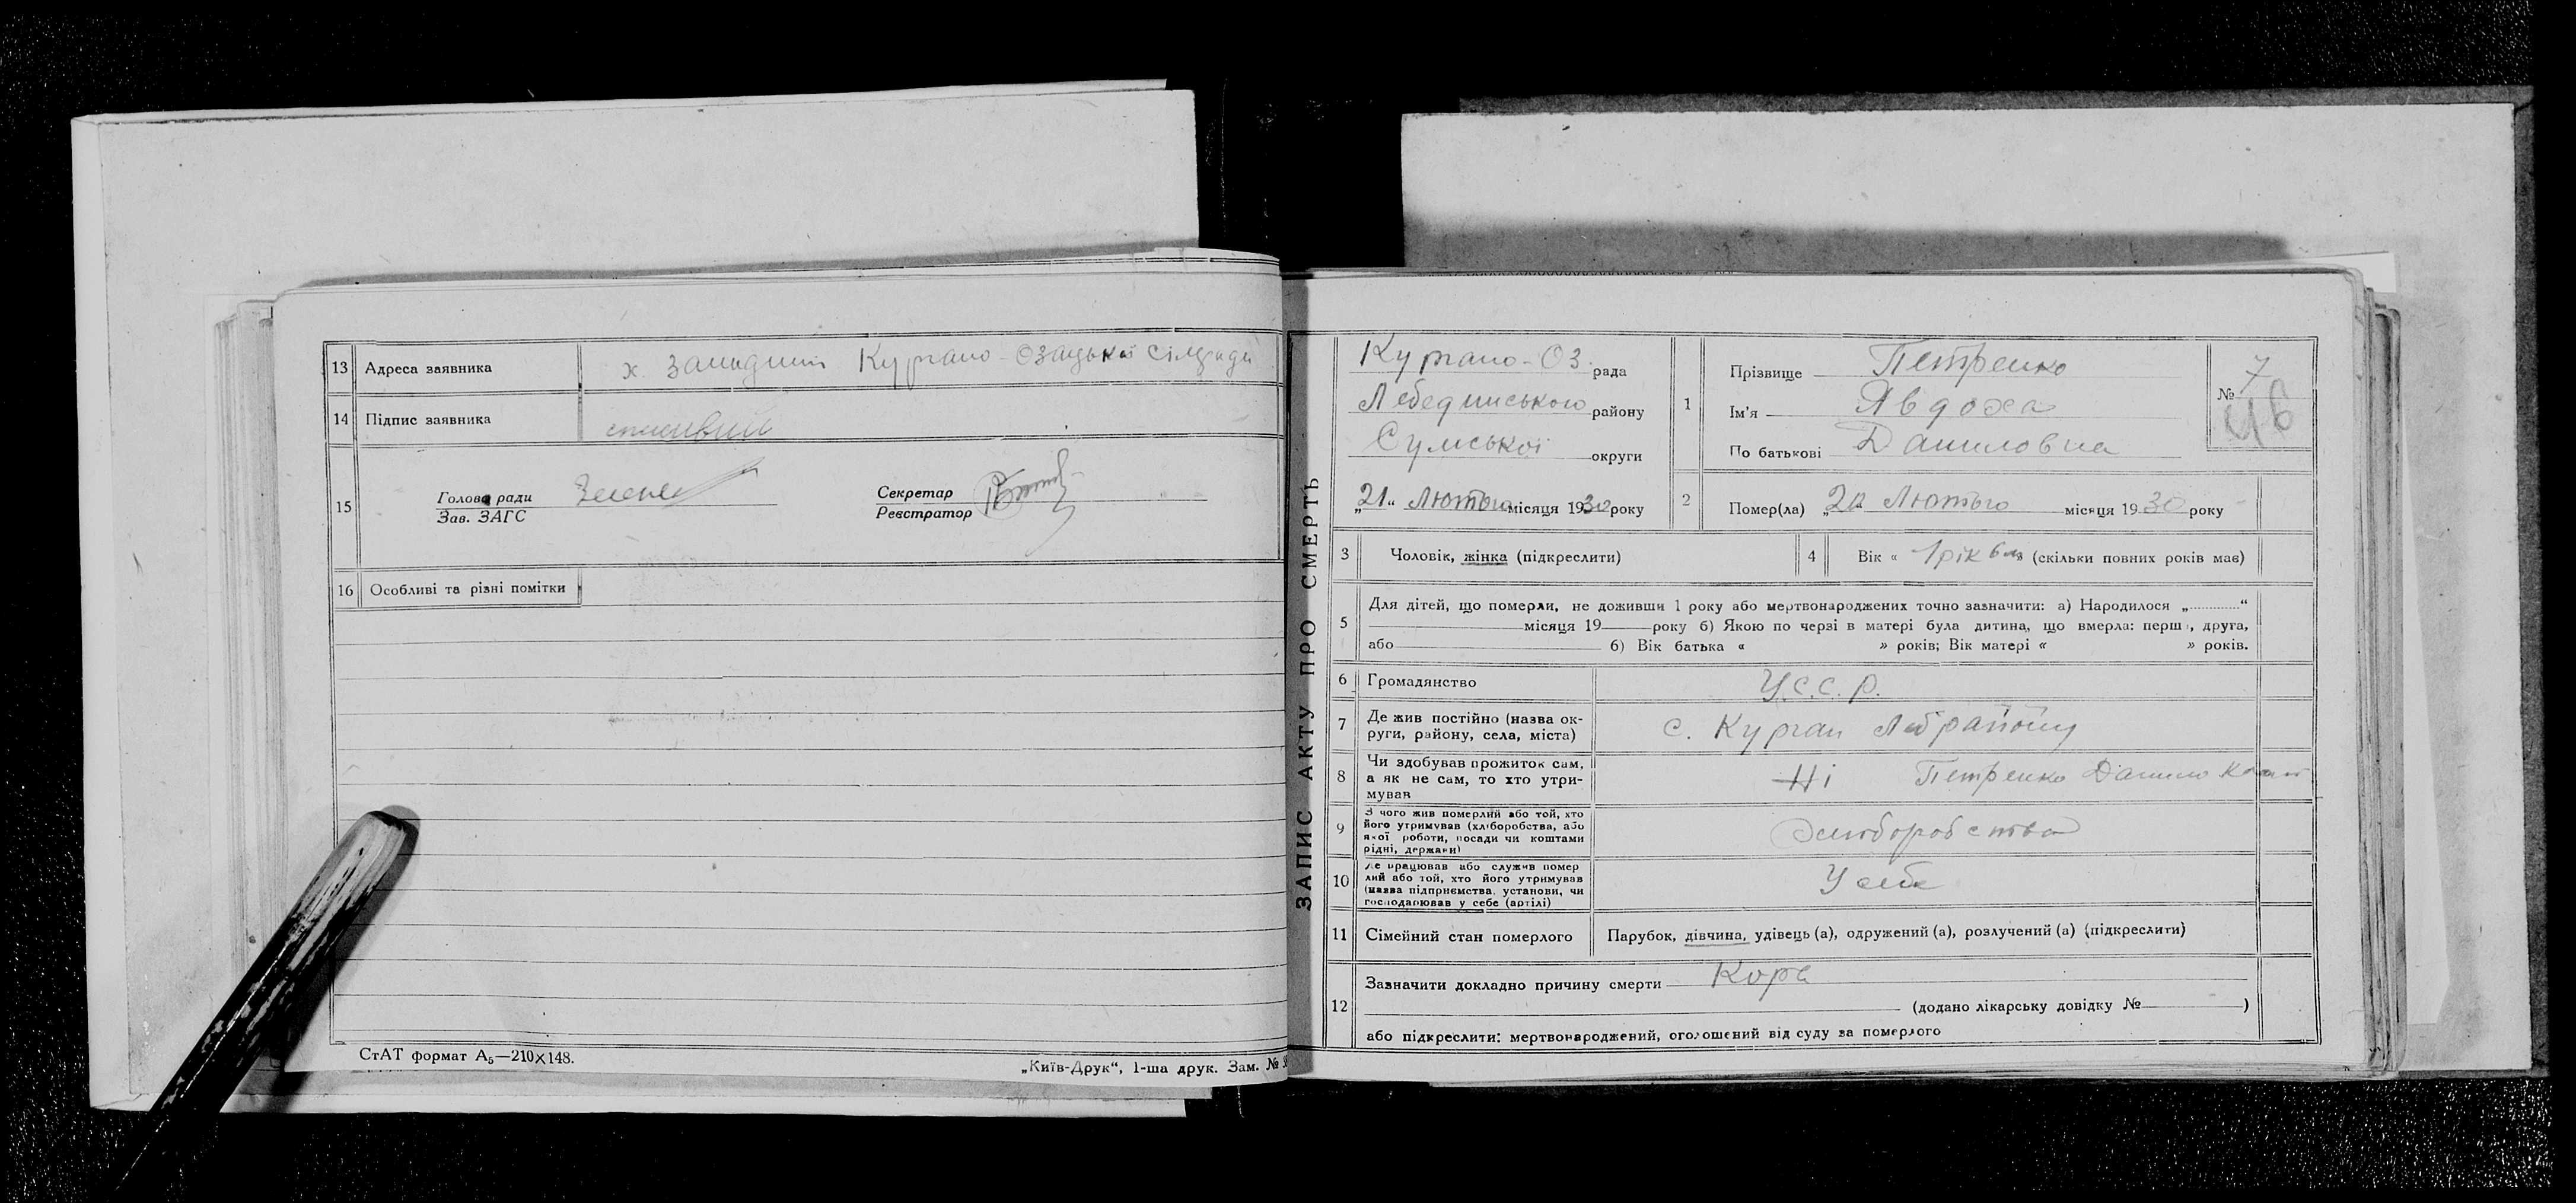 13 Адреса заявника х. Курган-Озацької сілради
14 Підпис заявника
15 Голова ради
Зав. ЗАГС
Секретар
Реєстратор
16 Особливі та різні помітки
СтАТ формат А₅—210×148.
„Київ-Друк“, 1-ша друк. Зам. №
ЗАПИС АКТУ ПРО СМЕРТЬ
Кургано-Оз. рада
Лебединського району
Сумської округи
„21“ Лютого місяця 1930 року
1 Прізвище Петренко
Ім'я Явдоха
По батькові Даниловна
№ 7
46
2 Помер(ла) Лютого місяця 1930 року
3 Чоловік, жінка (підкреслити)
4 Вік « 1 рік 6 м » (скільки повних років має)
5 Для дітей, що померли, не доживши 1 року або мертвонароджених точно зазначити: а) Народилося „.............“
місяця 19 року б) Якою по черзі в матері була дитина, що вмерла: перша, друга,
або б) Вік батька « » років; Вік матері « » років.
6 Громадянство У.С.С.Р.
7 Де жив постійно (назва ок-
руги, району, села, міста) с. Курган Леб району
8 Чи здобував прожиток сам,
а як не сам, то хто утри-
мував Ні Петренко Данило
9 З чого жив померлий або той, хто
його утримував (хліборобства, або
якої роботи, посади чи коштами
рідні, держави)
10 Де працював або служив помер
лий або той, хто його утримував
(назва підприємства, установи, чи
господарював у себе (артілі) У себе
11 Сімейний стан померлого Парубок, дівчина, удівець (а), одружений (а), розлучений (а) (підкреслити)
12 Зазначити докладно причину смерти Кора
(додано лікарську довідку № )
або підкреслити: мертвонароджений, оголошений від суду за померлого